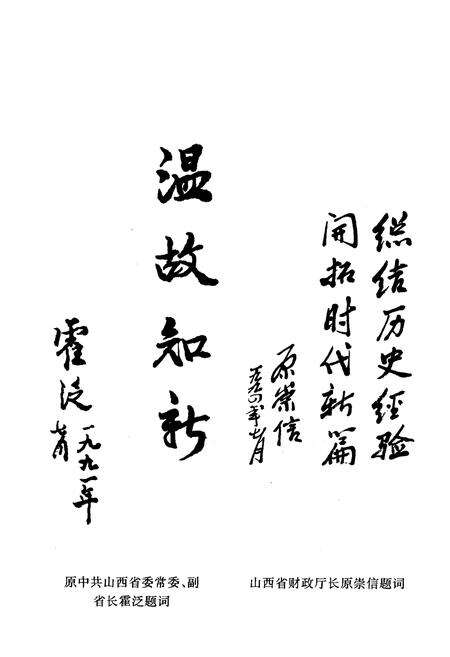 总结历史经验
开拓时代新篇
原崇信
温故知新
霍泛
一九九一年
山西省财政厅长原崇信题词
原中共山西省委常委、副
省长霍泛题词